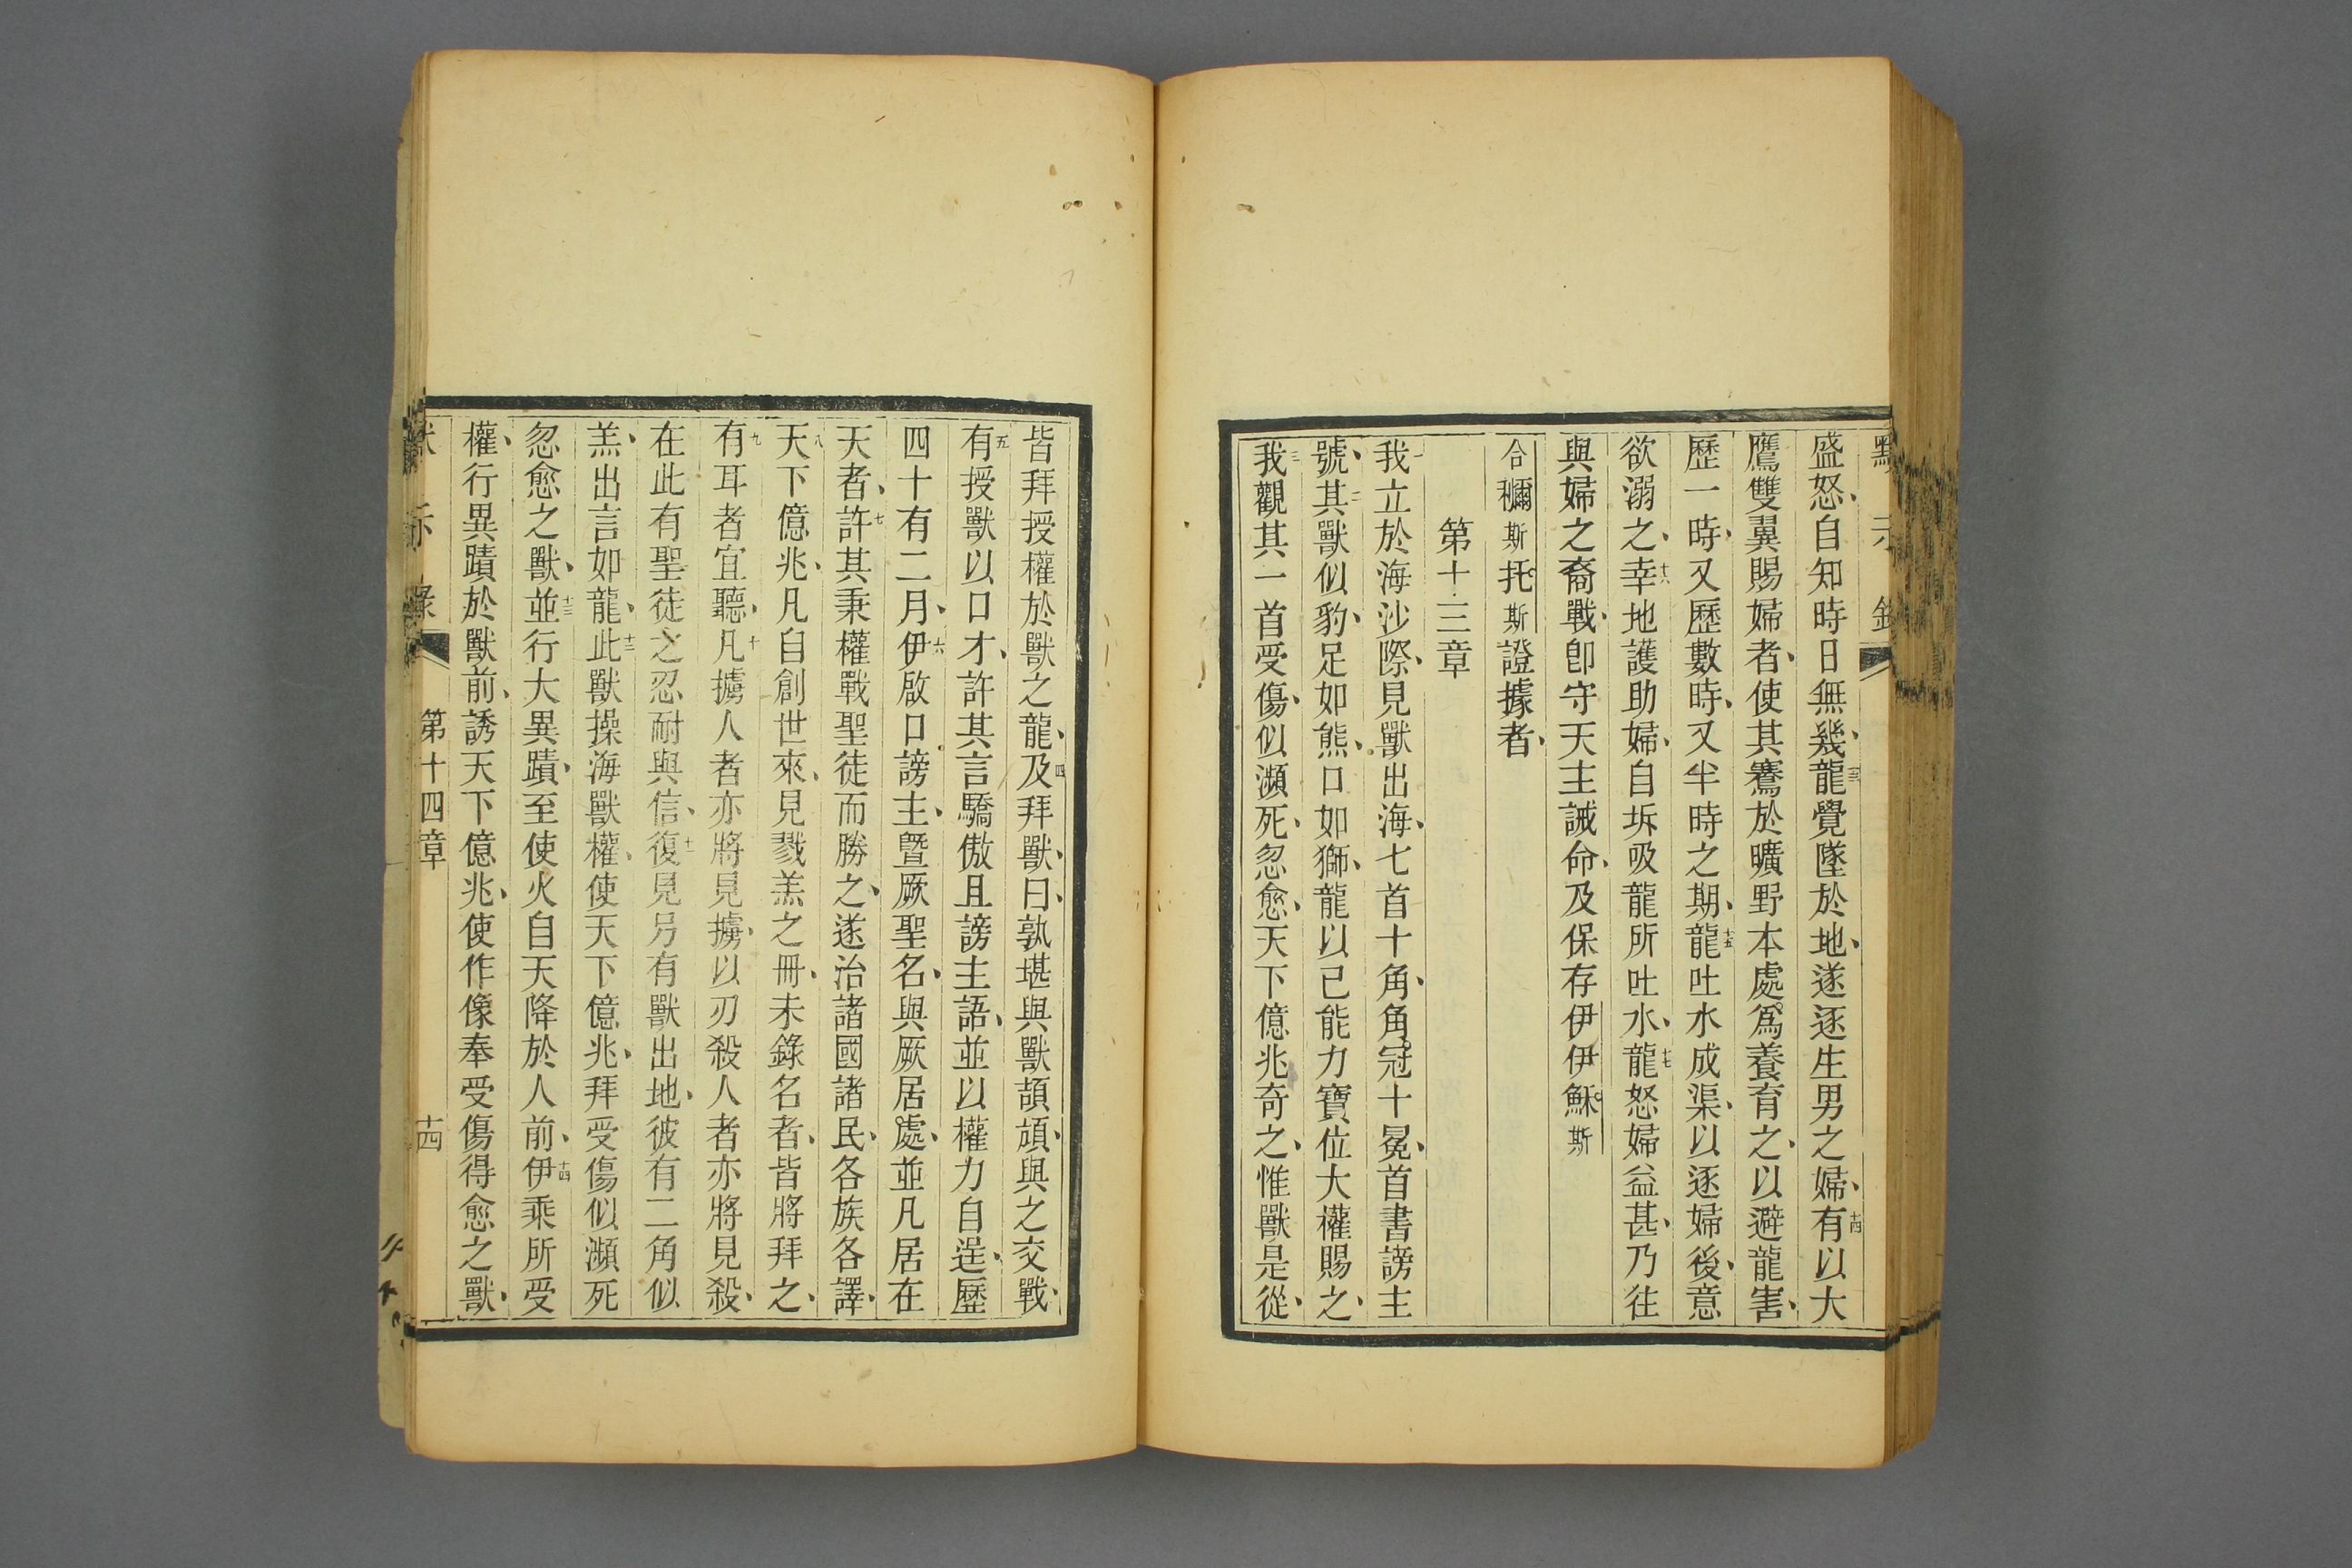 默示錄
盛怒、自知時日無幾、十三龍覺墜於地、遂逐生男之婦、十四有以大
鷹雙翼賜婦者、使其騫於曠野本處、爲養育之、以避龍害、
歷一時、又歷數時、又半時之期、十五龍吐水成渠、以逐婦後、意
欲溺之、十六幸地護助婦、自坼吸龍所吐水、十七龍怒婦益甚、乃往
與婦之裔戰、卽守天主誡命、及保存伊伊穌斯
合穪斯托斯證據者、
第十三章
一我立於海沙際、見獸出海、七首十角、角冠十冕、首書謗主
號、二其獸似豹、足如熊、口如獅、龍以已能力寶位大權賜之、
三我觀其一首受傷、似瀕死、忽愈、天下億兆奇之、惟獸是從、
皆拜授權於獸之龍、四及拜獸、曰、孰堪與獸頡頏、與之交戰、
五有授獸以口才、許其言驕傲且謗主語、並以權力自逞、歷
四十有二月、六伊啟口謗主、曁厥聖名、與厥居處、並凡居在
天者、七許其秉權戰聖徒而勝之、遂治諸國諸民、各族各譯、
八天下億兆、凡自創世來、見戮羔之冊、未錄名者、皆將拜之、
九有耳者宜聽、十凡擄人者亦將見擄、以刃殺人者亦將見殺、
在此有聖徒之忍耐與信、十一復見另有獸出地、彼有二角似
羔、出言如龍、十二此獸操海獸權、使天下億兆、拜受傷似瀕死
忽愈之獸、十三並行大異蹟、至使火自天降於人前、十四伊乘所受
權、行異蹟於獸前、誘天下億兆、使作像奉受傷得愈之獸、
默示錄 第十四章 十四